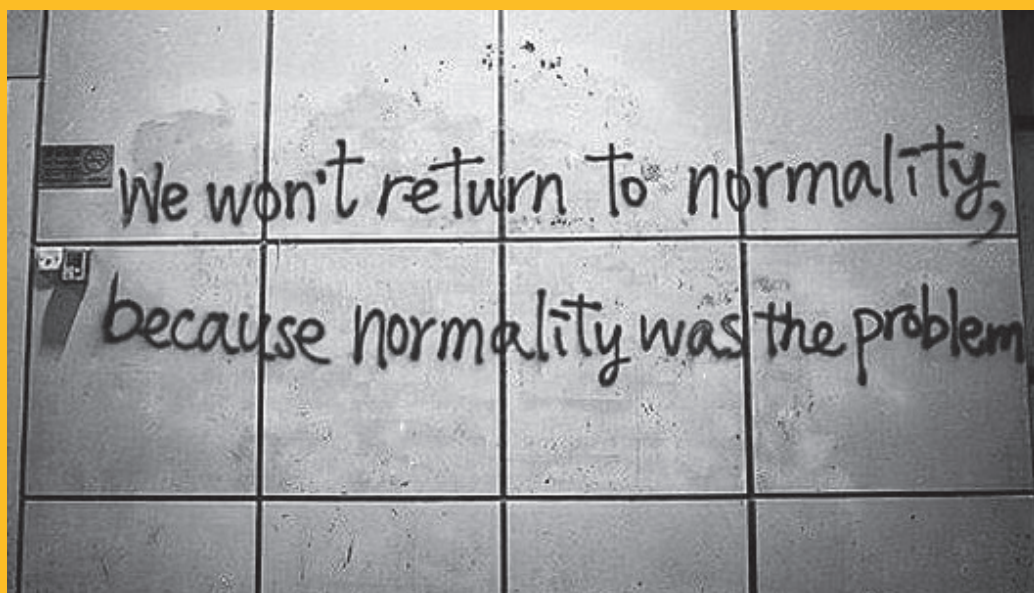 We won't return to normality,
because normality was the problem